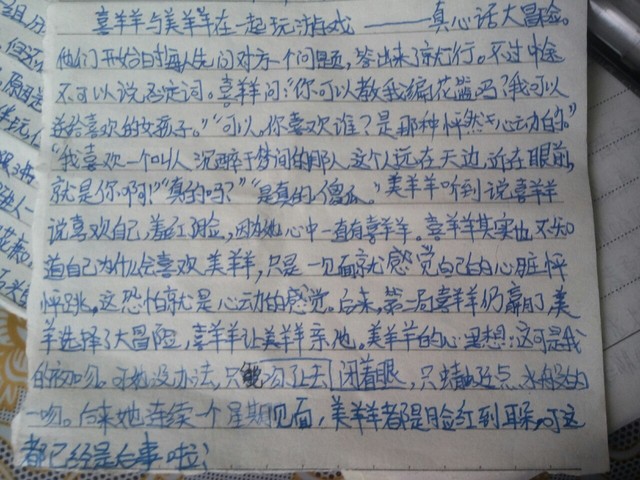 喜羊羊与美羊羊在一起玩游戏——真心话大冒险。
他们开始时每人先问对方一个问题,答出来了就行。不过中途
不可以说否定词。喜羊羊问:“你可以教我编花篮吗?我可以
送给喜欢的女孩子。”“可以。你喜欢谁?是那种怦然心动的。”
“我喜欢一个叫人沉醉于梦间的那人,这个人远在天边,近在眼前,
就是你啊!”“真的吗?”“是真的傻瓜。”美羊羊听到说喜羊羊
说喜欢自己,羞红了脸,因为她心中一直有喜羊羊。喜羊羊其实也不知
道自己为什么会喜欢美羊羊,只是一见面就感觉自己的心脏怦
怦跳。这恐怕就是心动的感觉。后来,第二局喜羊羊仍赢了,美
羊选择了大冒险,喜羊羊让美羊羊亲他。美羊羊的心里想:这可是我
的初吻。可她没办法,只能 闭着眼,只蜻蜓点水般的
一吻。后来她连续一个星期见面,美羊羊都是脸红到耳朵,可这
都已经是后事啦!
组
但
原因